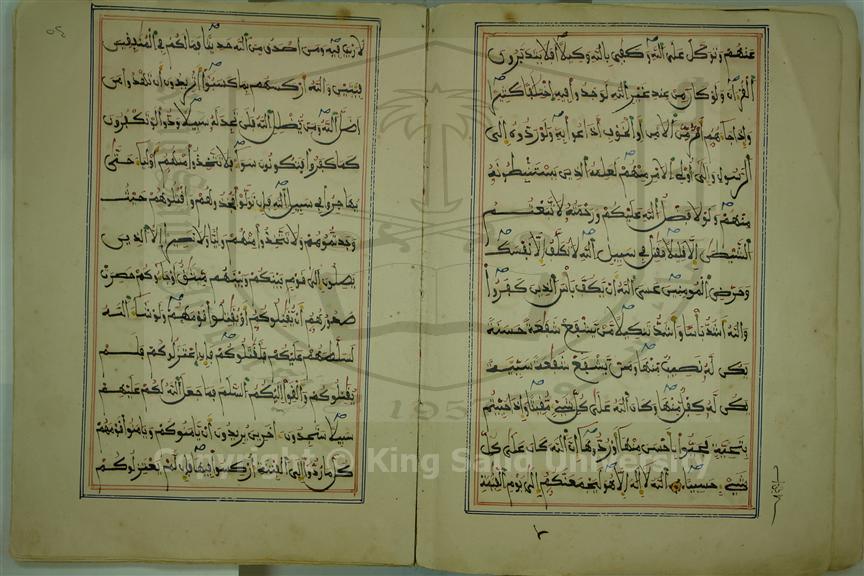 عنهم وتوكل على الله وكفى بالله وكيلا افلا يتدبرون
القرءان ولو كان من عند غير الله لوجدوا فيه اختلفا كثيرا
واذا جاءهم امر من الامن او الخوف اذاعوا به ولو ردوه الى
الرسول والى اولى الامر منهم لعلمه الذين يستنبطونه
منهم ولولا فضل الله عليكم ورحمته لاتبعتم
الشيطن الا قليلا فقتل في سبيل الله لا تكلف الا نفسك
وحرض المومنين عسى الله ان يكف باس الذين كفروا
والله اشد باسا واشد تنكيلا من يشفع شفعة حسنة
يكن له نصيب منها ومن يشفع شفعة سيئة
يكن له كفل منها وكان الله على كل شيء مقيتا واذا حييتم
بتحية فحيوا باحسن منها او ردوها ان الله كان على كل
شيء حسيبا الله لا اله الا هو ليجمعنكم الى يوم القيمة
لا ريب فيه ومن اصدق من الله حديثا فما لكم في المنفقين
فيتين والله اركسهم بما كسبوا اتريدون ان تهدوا من
اضل الله ومن يضلل الله فلن تجد له سبيلا ودوا لو تكفرون
كما كفروا فتكونون سواء فلا تتخذوا منهم اولياء حتى
يهاجروا في سبيل الله فان تولوا فخذوهم واقتلوهم حيث
وجدتموهم ولا تتخذوا منهم وليا ولا نصيرا الا الذين
يصلون الى قوم بينكم وبينهم ميثق او جاءوكم حصرت
صدورهم ان يقتلوكم او يقتلوا قومهم ولو شاء الله
لسلطهم عليكم فلقتلوكم فان اعتزلوكم فلم
يقتلوكم والقوا اليكم السلم فما جعل الله لكم عليهم
سبيلا ستجدون اخرين يريدون ان يامنوكم ويامنوا قومهم
كل ما ردوا الى الفتنة اركسوا فيها فان لم يعتزلوكم
Copyright © King Saud University